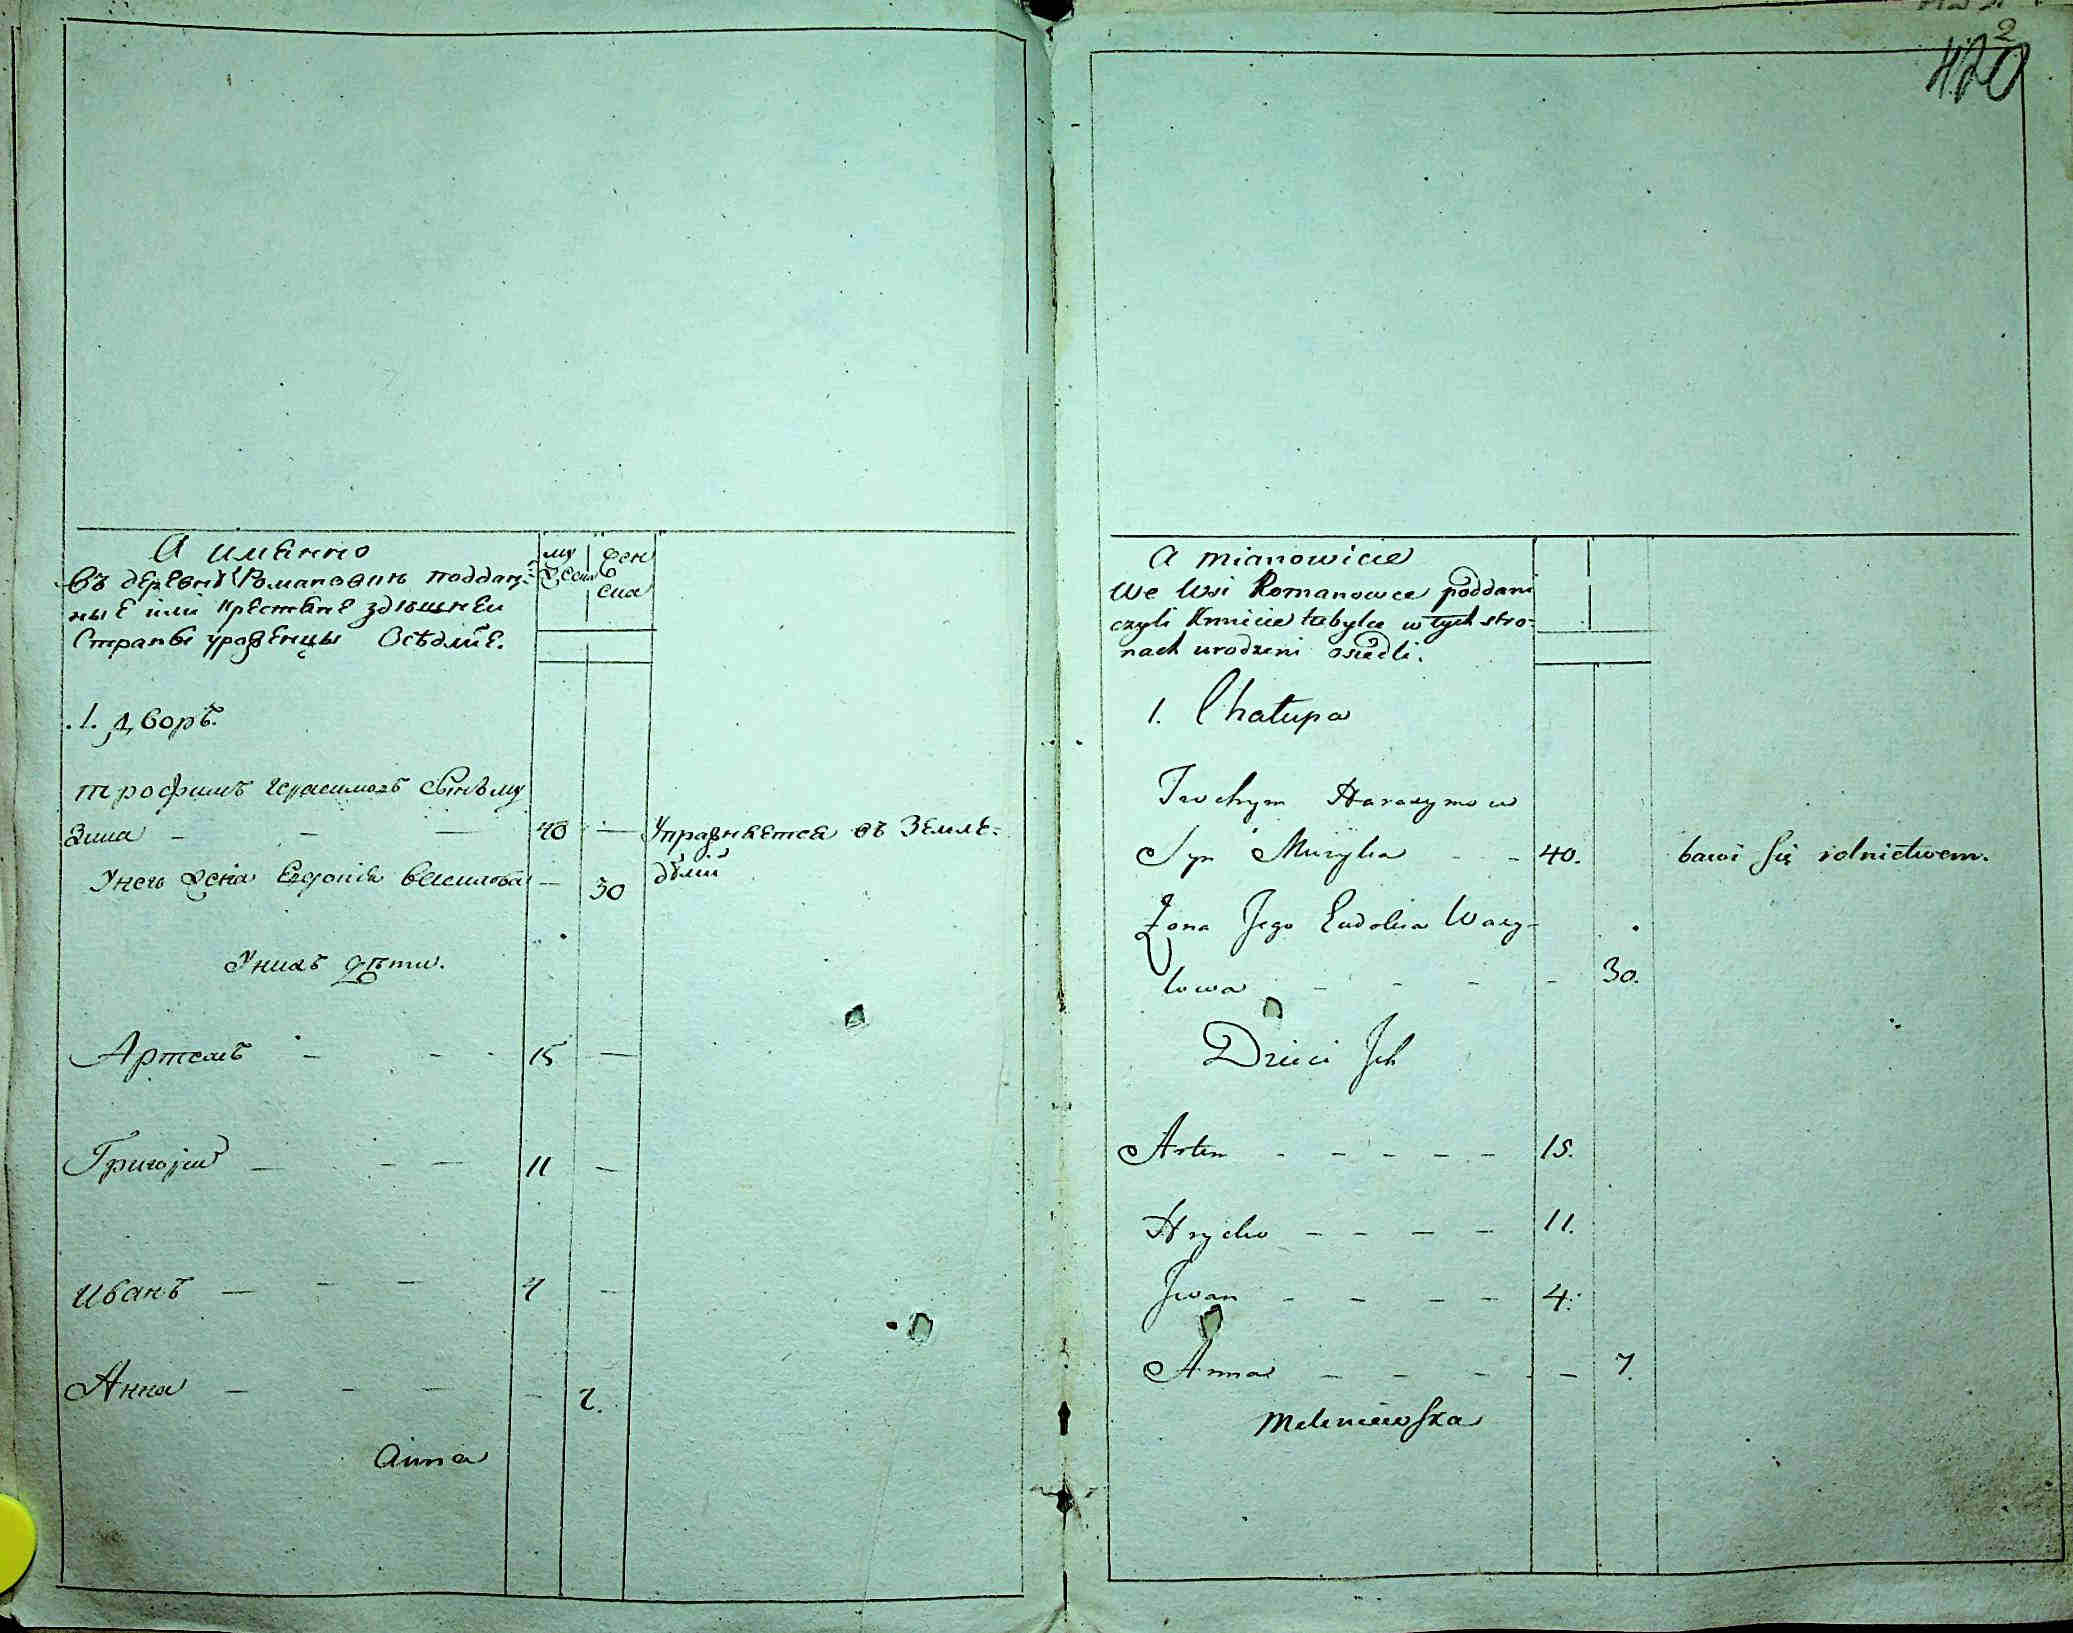 А именно
въ деревнѣ Романовки поддан-
ные или крестяне здѣшней
Страны уроженцы Осѣдлые.
му жен
жеска ска
.1. дворъ.
трофимъ Герасимовъ Сынъ му
зика - - - 40 - Упражняется въ Земле-
дѣлии
Унего жена Евдокия василова - 30
Унихъ дѣти.
Артемъ - - - 15 -
Григорий - - - 11 -
Иванъ - - - 4 -
Анна - - - - 7.
Anna
2
420
A mianowicie
We Wsi Romanowce poddani
czyli Kmiecie tubylce w tych stro-
nach urodzeni osiedli.
1. Chałupa
Trochym Harasymow
Syn Muzyka - - 40. bawi się rolnictwem.
Żona Jego Eudokia Wasy-
lowa - - - - 30.
Dzieci Ich
Artem - - - - - 15.
Hryćko - - - - 11.
Iwan - - - - 4.
Anna - - - - - 7.